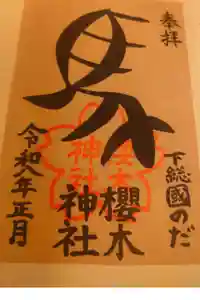 奉拝
下総國のだ
馬
櫻木
神社
神社
令和八年正月